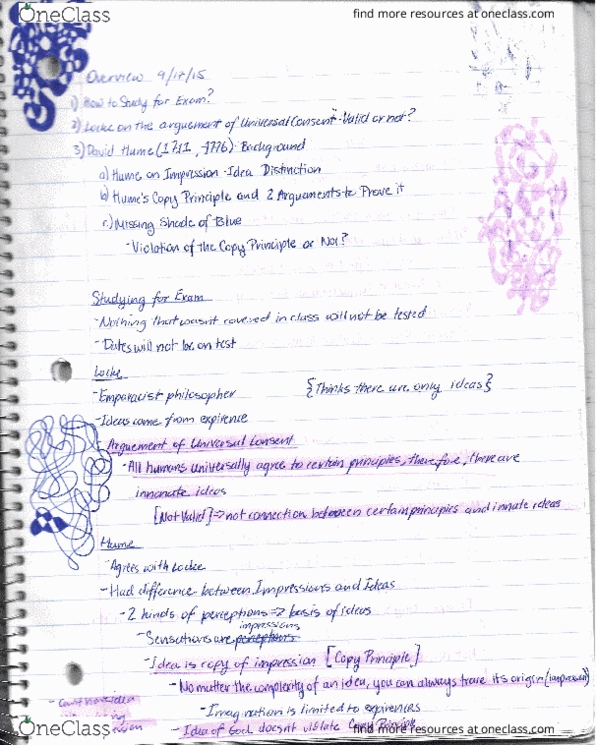 OneClass
find more resources at oneclass.com
Overview 9/17/15
1) How to Study for Exam?
2) Locke on the arguement of "Universal Consent"-Valid or not?
3) David Hume (1711, 1776): Background
a) Hume on Impression-Idea Distinction
b) Hume's Copy Principle and 2 Arguments to Prove it
c) Missing Shade of Blue
- Violation of the Copy Principle or Not?
Studying for Exam
- Nothing that wasn't covered in class will not be tested
- Dates will not be on test
Locke
- Emparacist philosopher {Thinks there are only ideas}
- Ideas come from expirence
- Arguement of Universal Consent
- All humans universally agree to certain principies, therefore, there are
innanate ideas
[Not Valid] => not connection between certain principies and innate ideas
Hume
- Agrees with Locke
- Had difference between Impressions and Ideas
- 2 kinds of perceptions => basis of ideas
impressions
- Sensations are perceptions
- Idea is copy of impression [Copy Principle]
- No matter the complexity of an idea, you can always trave its origin (impression)
- Imagination is limited to expirences
- Can't have idea
- Idea of God doesn't violate Copy Principle
OneClass
find more resources at oneclass.com